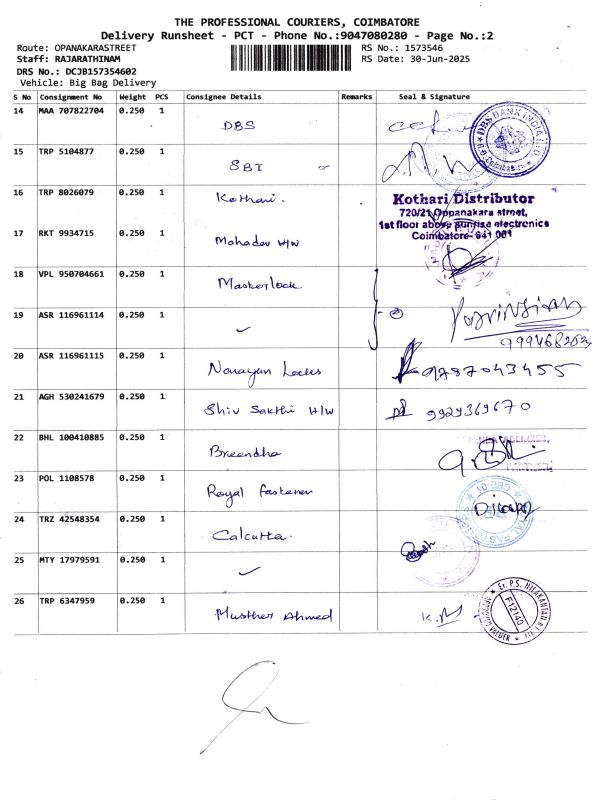 THE PROFESSIONAL COURIERS, COIMBATORE
Delivery Runsheet - PCT - Phone No.:9047080280 - Page No.:2
Route: OPANAKARASTREET RS No.: 1573546
Staff: RAJARATHINAM RS Date: 30-Jun-2025
DRS No.: DCJB157354602
Vehicle: Big Bag Delivery
S No Consignment No Weight PCS Consignee Details Remarks Seal & Signature
14 MAA 707822704 0.250 1 DBS DBS BANK INDIA LTD Coimbatore
15 TRP 5104877 0.250 1 SBI
16 TRP 8026079 0.250 1 Kothari.
Kothari Distributor
720/21, Oppanakara street,
1st floor above sunrise electronics
Coimbatore- 641 001
17 RKT 9934715 0.250 1 Mahadev H/W
18 VPL 950704661 0.250 1 Masterlock
19 ASR 116961114 0.250 1
20 ASR 116961115 0.250 1 Narayan Locks 9787043455
21 AGH 530241679 0.250 1 Shiv Sakthi H/W 9929369670
22 BHL 100410885 0.250 1 Breendha
23 POL 1108578 0.250 1 Royal fastener CBE-01
24 TRZ 42548354 0.250 1 Calcutta.
25 MTY 17979591 0.250 1
26 TRP 6347959 0.250 1 Musther Ahmed K.M Er. P.S. NILAKANTAN F12140 VALUER